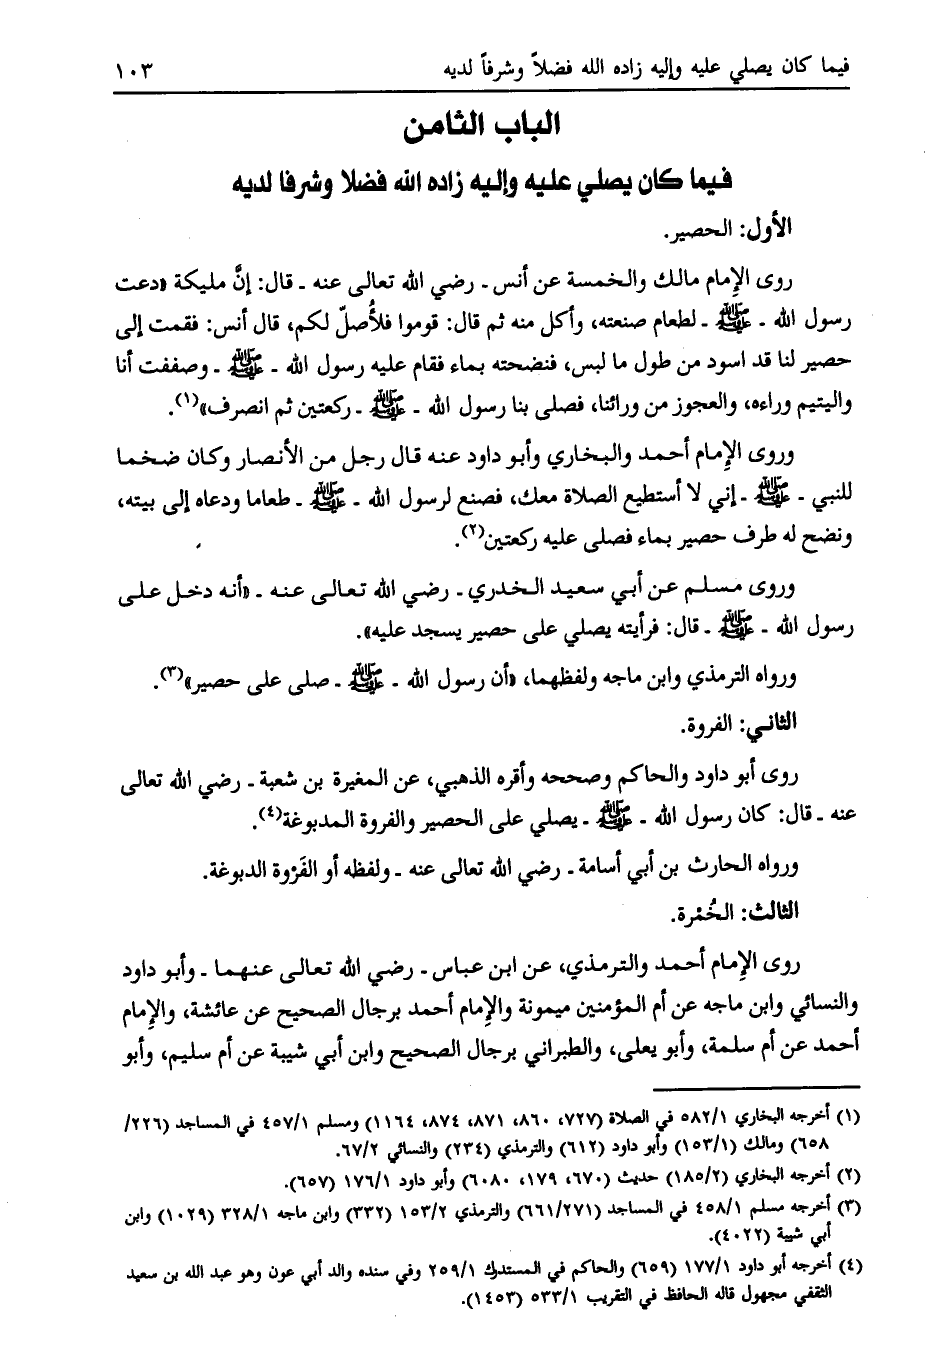 فيما كان يصلي عليه وإليه زاده الله فضلاً وشرفاً لديه ١٠٣
الباب الثامن
فيما كان يصلي عليه وإليه زاده الله فضلا وشرفا لديه
الأول: الحصير.
روى الإمام مالك والخمسة عن أنس ـ رضي الله تعالى عنه ـ قال: إنَّ مليكة «دعت
رسول الله ـ ﷺ ـ لطعام صنعته، وأكل منه ثم قال: قوموا فلأُصلّ لكم، قال أنس: فقمت إلى
حصير لنا قد اسود من طول ما لبس، فنضحته بماء فقام عليه رسول الله ـ ﷺ ـ وصففت أنا
واليتيم وراءه، والعجوز من ورائنا، فصلى بنا رسول الله ـ ﷺ ـ ركعتين ثم انصرف»(١).
وروى الإمام أحمد والبخاري وأبو داود عنه قال رجل من الأنصار وكان ضخما
للنبي ـ ﷺ ـ إني لا أستطيع الصلاة معك، فصنع لرسول الله ـ ﷺ ـ طعاما ودعاه إلى بيته،
ونضح له طرف حصير بماء فصلى عليه ركعتين(٢).
وروى مسلم عن أبي سعيد الخدري ـ رضي الله تعالى عنه ـ «أنه دخل على
رسول الله ـ ﷺ ـ قال: فرأيته يصلي على حصير يسجد عليه».
ورواه الترمذي وابن ماجه ولفظهما، «أن رسول الله ـ ﷺ ـ صلى على حصير»(٣).
الثاني: الفروة.
روى أبو داود والحاكم وصححه وأقره الذهبي، عن المغيرة بن شعبة ـ رضي الله تعالى
عنه ـ قال: كان رسول الله ـ ﷺ ـ يصلي على الحصير والفروة المدبوغة(٤).
ورواه الحارث بن أبي أسامة ـ رضي الله تعالى عنه ـ ولفظه أو الفَرْوة الدبوغة.
الثالث: الخُمْرة.
روى الإمام أحمد والترمذي، عن ابن عباس ـ رضي الله تعالى عنهما ـ وأبو داود
والنسائي وابن ماجه عن أم المؤمنين ميمونة والإمام أحمد برجال الصحيح عن عائشة، والإمام
أحمد عن أم سلمة، وأبو يعلى، والطبراني برجال الصحيح وابن أبي شيبة عن أم سليم، وأبو
(١) أخرجه البخاري ٥٨٢/١ في الصلاة (٧٢٧، ٨٦٠، ٨٧١، ٨٧٤، ١١٦٤) ومسلم ٤٥٧/١ في المساجد (٢٢٦/
٦٥٨) ومالك (١٥٣/١) وأبو داود (٦١٢) والترمذي (٢٣٤) والنسائي ٦٧/٢.
(٢) أخرجه البخاري (١٨٥/٢) حديث (٦٧٠، ١٧٩، ٦٠٨٠) وأبو داود ١٧٦/١ (٦٥٧).
(٣) أخرجه مسلم ٤٥٨/١ في المساجد (٦٦١/٢٧١) والترمذي ١٥٣/٢ (٣٣٢) وابن ماجه ٣٢٨/١ (١٠٢٩) وابن
أبي شيبة (٤٠٢٢).
(٤) أخرجه أبو داود ١٧٧/١ (٦٥٩) والحاكم في المستدرك ٢٥٩/١ وفي سنده والد أبي عون وهو عبد الله بن سعيد
الثقفي مجهول قاله الحافظ في التقريب ٥٣٣/١ (١٤٥٣).